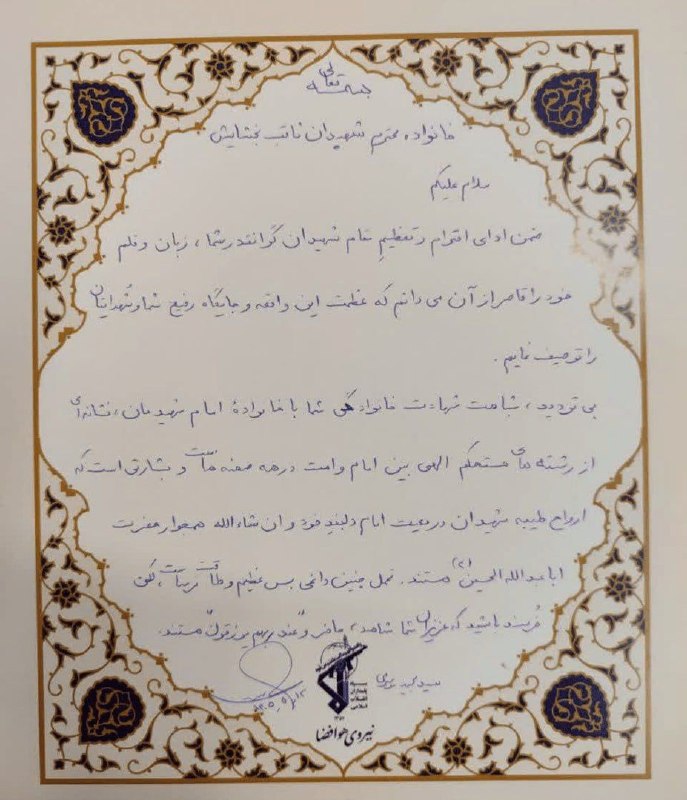 بسمه تعالی
خانواده محترم شهیدان نائب بخشایش
سلام علیکم
ضمن ادای احترام و تعظیم مقام شهیدان گرانقدر شما، زبان و قلم
خود را قاصر از آن می دانم که عظمت این واقعه و جایگاه رفیع شما و شهدایتان
را توصیف نمایم.
بی تردید، شباهت شهادت خانوادگی شما با خانوادهٔ امام شهیدمان، نشانه‌ای
از رشته های مستحکم الهی بین امام و امت در همه صحنه هاست و بشارتی است که
ارواح طیبه شهیدان در معیت امام دلبند خود و ان شاءالله همجوار حضرت
اباعبدالله الحسین (ع) هستند. تحمل چنین داغی بس عظیم و طاقت فرساست، لکن
خرسند باشید که عزیزان شما شاهد، حاضر و "عند ربهم یرزقون" هستند.
سید مجید
سپاه پاسداران انقلاب اسلامی
نیروی هوافضا